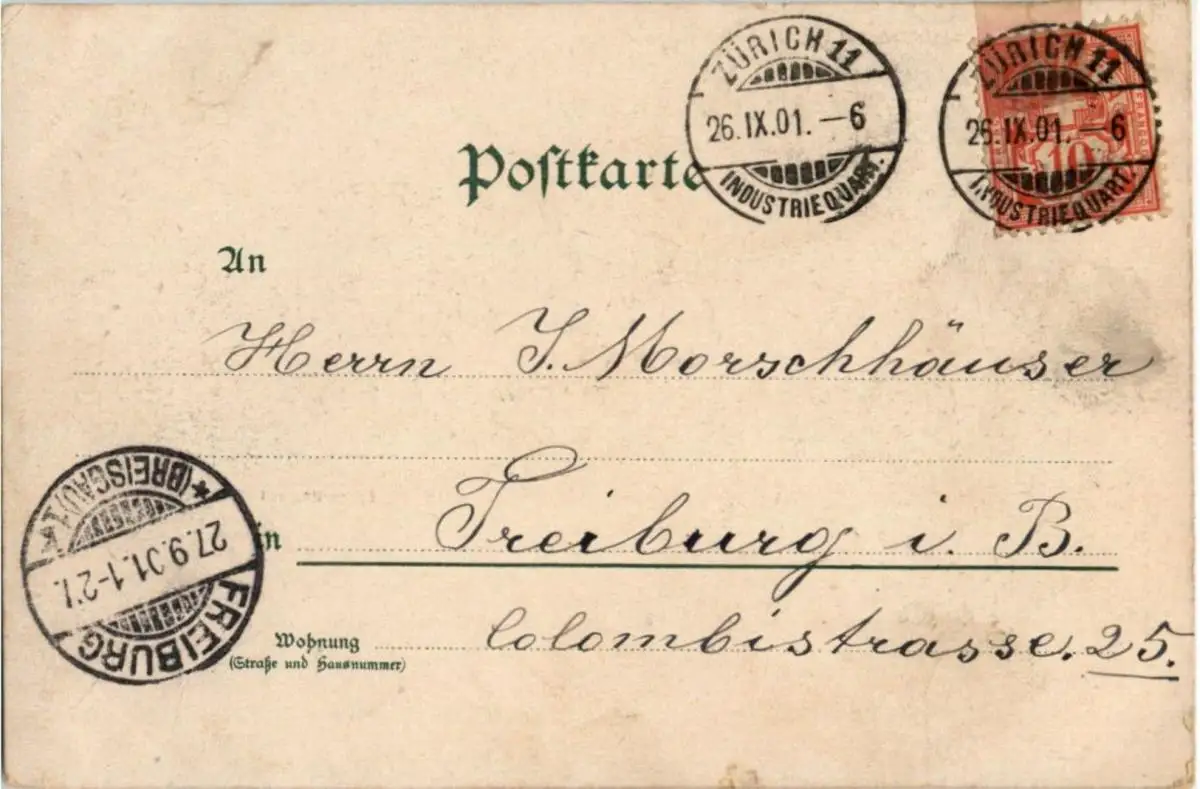 ZÜRICH 11
26.IX.01.–6
INDUSTRIEQUART.
ZÜRICH 11
26.IX.01.–6
INDUSTRIEQUART.
10
FRANCO
Postkarte
An
Herrn J. Morschhäuser
in Freiburg i. B.
Wohnung Colombistrasse. 25.
(Straße und Hausnummer)
FREIBURG
27.9.01.1-2N.
*(BREISGAU)1*